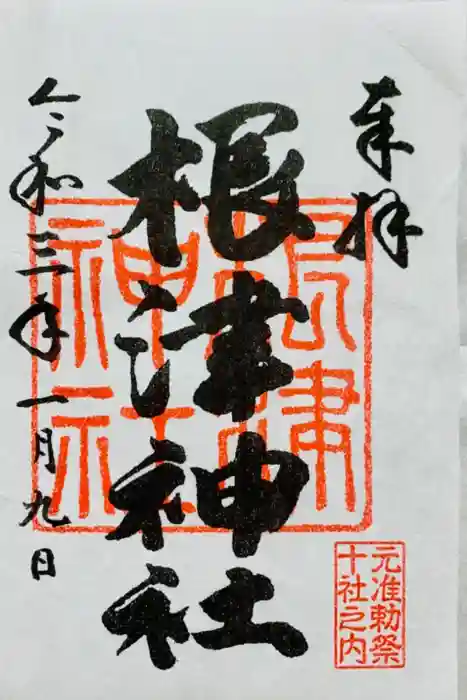 奉拝
根津神社
根津
神社
令和三年一月九日
元准勅祭
十社之内